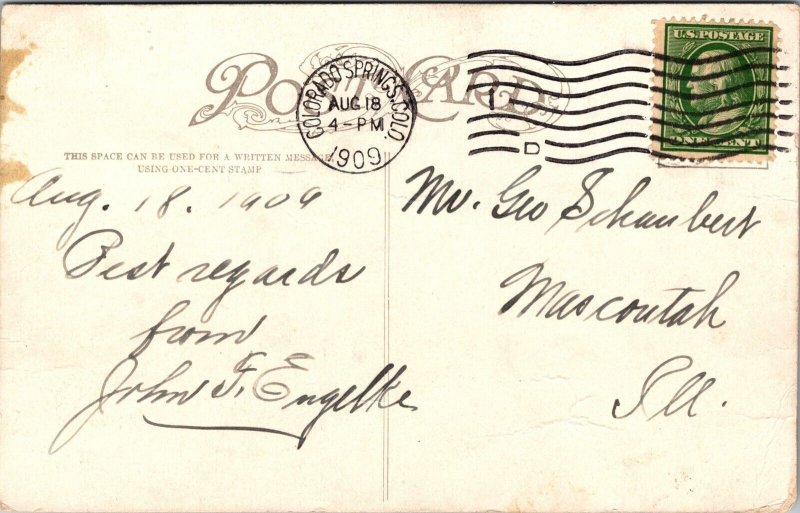 POST CARD
COLORADO SPRINGS, COLO.
AUG 18
4-PM
1909
1
D
U.S. POSTAGE
ONE CENT
THIS SPACE CAN BE USED FOR A WRITTEN MESSAGE,
USING ONE-CENT STAMP
Aug. 18. 1909
Best regards
from
John F. Engelke
Mr. Geo Schaubert
Mascoutah
Ill.